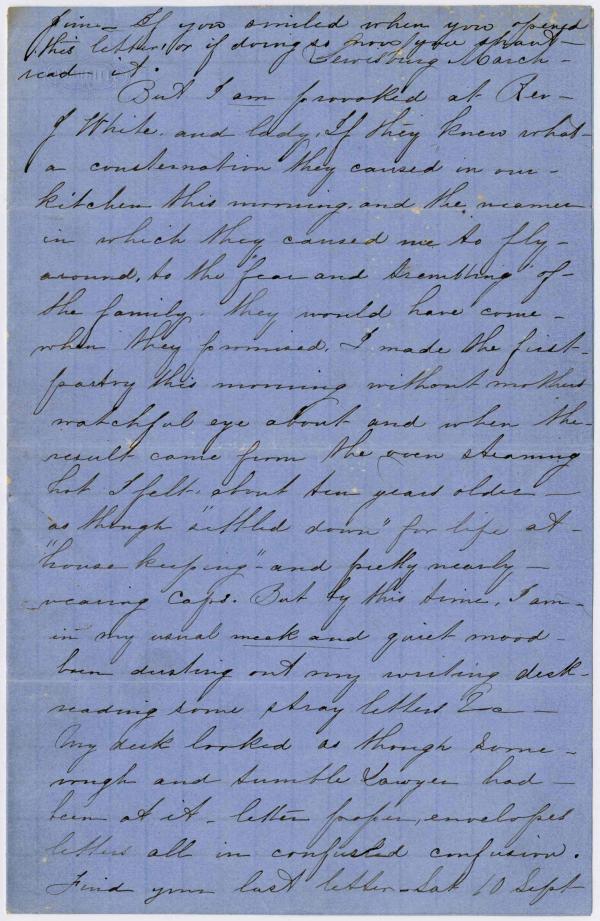 Jime - If you smiled when you opened
this letter, or if doing so now, you shant -
read it.
Lewisburg March -
But I am provoked at Rev -
J White. and lady. If they knew what -
a consternation they caused in our -
kitchen this morning. and the manner
in which they caused me to fly -
around, to the "fear and trembling" of -
the family. they would have come -
when they promised. I made the first -
pastry this morning without mothers
watchful eye about and when the -
result came from the oven steaming
hot I felt. about ten years older -
as though "settled down" for life at -
"house keeping" - and pretty nearly -
wearing caps. But by this time, I am -
in my usual meek and quiet mood -
been dusting out my writing desk -
reading some stray letters &c -
My desk looked as though some -
rough and tumble Lawyer had -
been at it - letter paper, envelopes
letters all in confused confusion.
Find your last letter - Sat 10 Sept